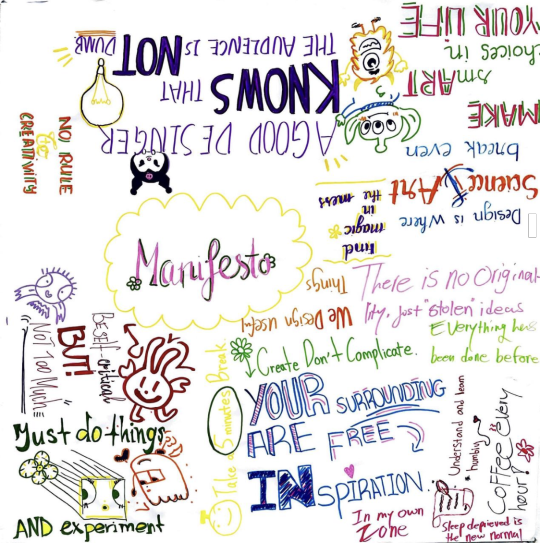 YOUR LIFE
choices in
smART
MAKE
A GOOD DESINGER
KNOWS THAT
THE AUDIENCE IS NOT
DUMB
NO RULE
for
CREATIVITY
Design is Where
Science & Art
break even
find
magic
in
the mess
Manifesto
We Design useful
Things
There is no Original
lity, just "stolen" ideas
Everything has
been done before
Create Don't Complicate.
BE self critical
BUT!
NOT Too Much
Take a 5 minutes Break
YOUR SURROUNDING
ARE FREE
INSPIRATION
Just do things
AND experiment
In my own
Zone
Understand and learn
humbly
Coffee Every
hour!
Sleep deprieved is
the new normal